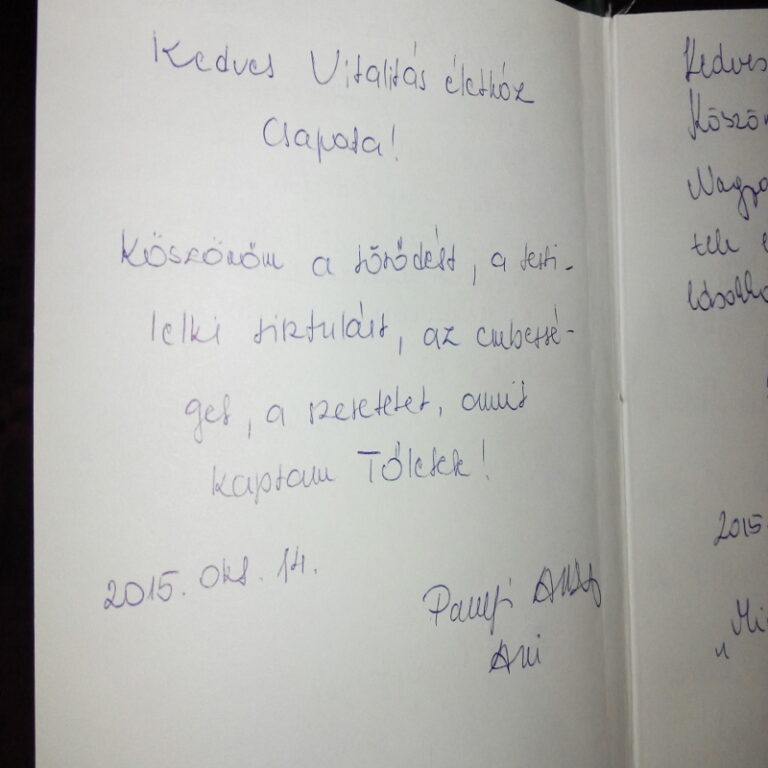 Kedves Vitalitás életház
Csapata!
Köszönöm a törődést, a testi-
lelki tisztulást, az embersé-
get, a szeretetet, amit
kaptam Tőletek!
2015. Okt. 14.
Ani
Kedves
Köszön
Nagyo
tele
2015.
"Mi